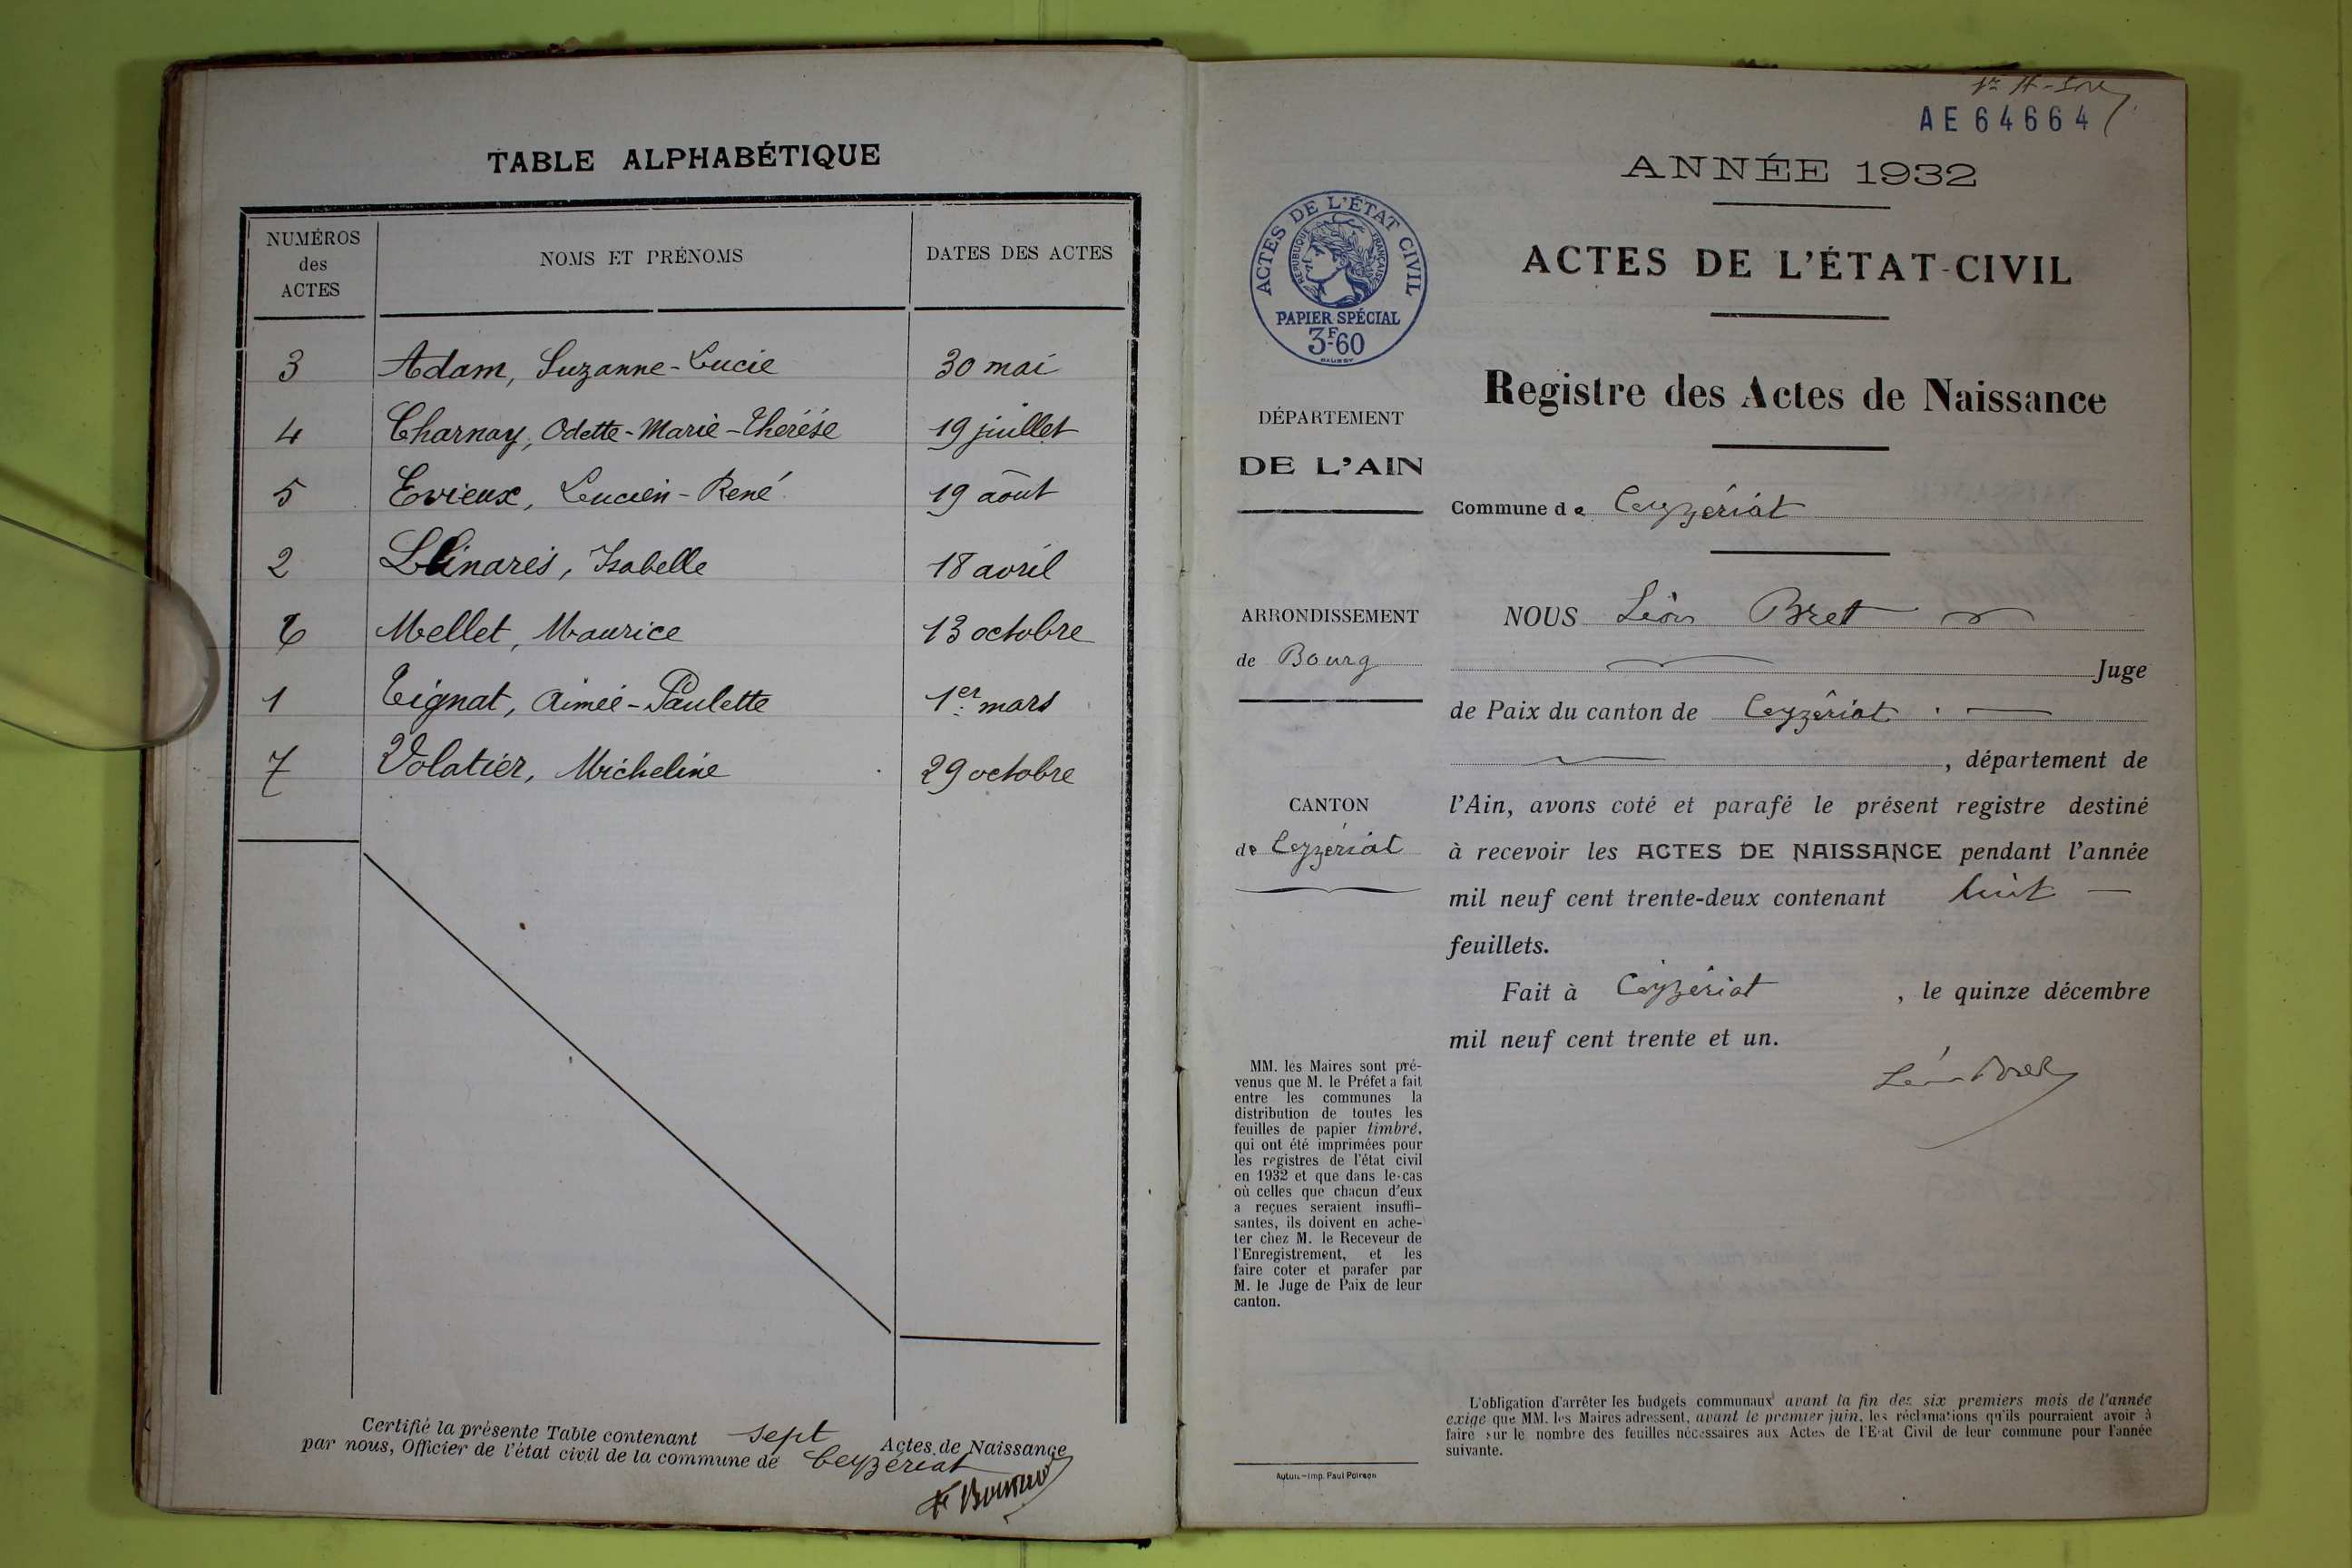 TABLE ALPHABÉTIQUE
NUMÉROS
des
ACTES
NOMS ET PRÉNOMS
DATES DES ACTES
3 Adam, Suzanne-Lucie 30 mai
4 Charnay, Odette-Marie-Thérése 19 juillet
5 Evieux, Lucien-René 19 août
2 Llinarés, Isabelle 18 avril
6 Mellet, Maurice 13 octobre
1 Tignat, Aimée-Paulette 1er mars
7 Volatier, Micheline 29 octobre
Certifié la présente Table contenant sept Actes de Naissance
par nous, Officier de l'état civil de la commune de Ceyzériat
AE 64664
ANNÉE 1932
ACTES DE L'ÉTAT CIVIL
RÉPUBLIQUE FRANÇAISE
PAPIER SPÉCIAL
3F60
ACTES DE L'ÉTAT-CIVIL
Registre des Actes de Naissance
DÉPARTEMENT
DE L'AIN
Commune de Ceyzériat
ARRONDISSEMENT
de Bourg
NOUS Léon Bret
Juge
de Paix du canton de Ceyzériat
, département de
CANTON
de Ceyzériat
l'Ain, avons coté et parafé le présent registre destiné
à recevoir les ACTES DE NAISSANCE pendant l'année
mil neuf cent trente-deux contenant huit
feuillets.
Fait à Ceyzériat , le quinze décembre
mil neuf cent trente et un.
Léon Bret
MM. les Maires sont pré-
venus que M. le Préfet a fait
entre les communes la
distribution de toutes les
feuilles de papier timbré,
qui ont été imprimées pour
les registres de l'état civil
en 1932 et que dans le cas
où celles que chacun d'eux
a reçues seraient insuffi-
santes, ils doivent en ache-
ter chez M. le Receveur de
l'Enregistrement, et les
faire coter et parafer par
M. le Juge de Paix de leur
canton.
L'obligation d'arrêter les budgets communaux avant la fin des six premiers mois de l'année
exige que MM. les Maires adressent, avant le premier juin, les réclamations qu'ils pourraient avoir à
faire sur le nombre des feuilles nécessaires aux Actes de l'Etat Civil de leur commune pour l'année
suivante.
Autun.-Imp. Paul Poirson